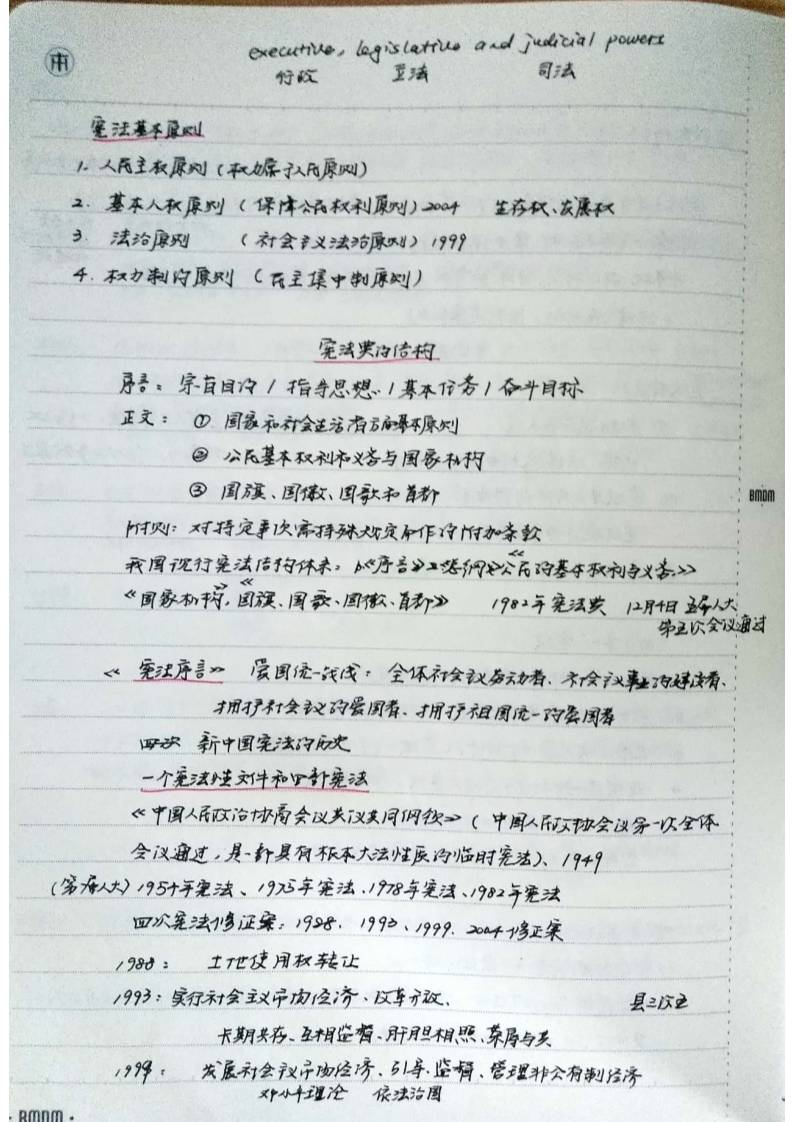 executive, legislative and judicial powers
行政 立法 司法
宪法基本原则
1. 人民主权原则（权力属于人民原则）
2. 基本人权原则（保障公民权利原则）2004 生存权、发展权
3. 法治原则 （社会主义法治原则）1999
4. 权力制约原则 （民主集中制原则）
宪法典的结构
序言：宗旨目的 / 指导思想 / 基本任务 / 奋斗目标
正文：① 国家和社会生活诸方面基本原则
② 公民基本权利和义务与国家机构
③ 国旗、国徽、国歌和首都
附则：对特定事项需特殊规定而作的附加条款
我国现行宪法结构体系：《序言》《总纲》《公民的基本权利与义务》
《国家机构》《国旗、国歌、国徽、首都》 1982年宪法典 12月4日 五届人大
第五次会议通过
《宪法序言》 爱国统一战线：全体社会主义劳动者、社会主义事业的建设者、
拥护社会主义的爱国者、拥护祖国统一的爱国者
四次 新中国宪法的历史
一个宪法性文件和四部宪法
《中国人民政治协商会议共议共同纲领》（中国人民政协会议第一次全体
会议通过，是一部具有根本大法性质的临时宪法）、1949
（第一届人大）1954年宪法、1975年宪法、1978年宪法、1982年宪法
四次宪法修正案：1988、1993、1999、2004修正案
1988： 土地使用权转让
1993：实行社会主义市场经济、改革开放、 县三改五
长期共存、互相监督、肝胆相照、荣辱与共
1999： 发展社会主义市场经济、引导、监督、管理非公有制经济
邓小平理论 依法治国
BMDM
BMDM